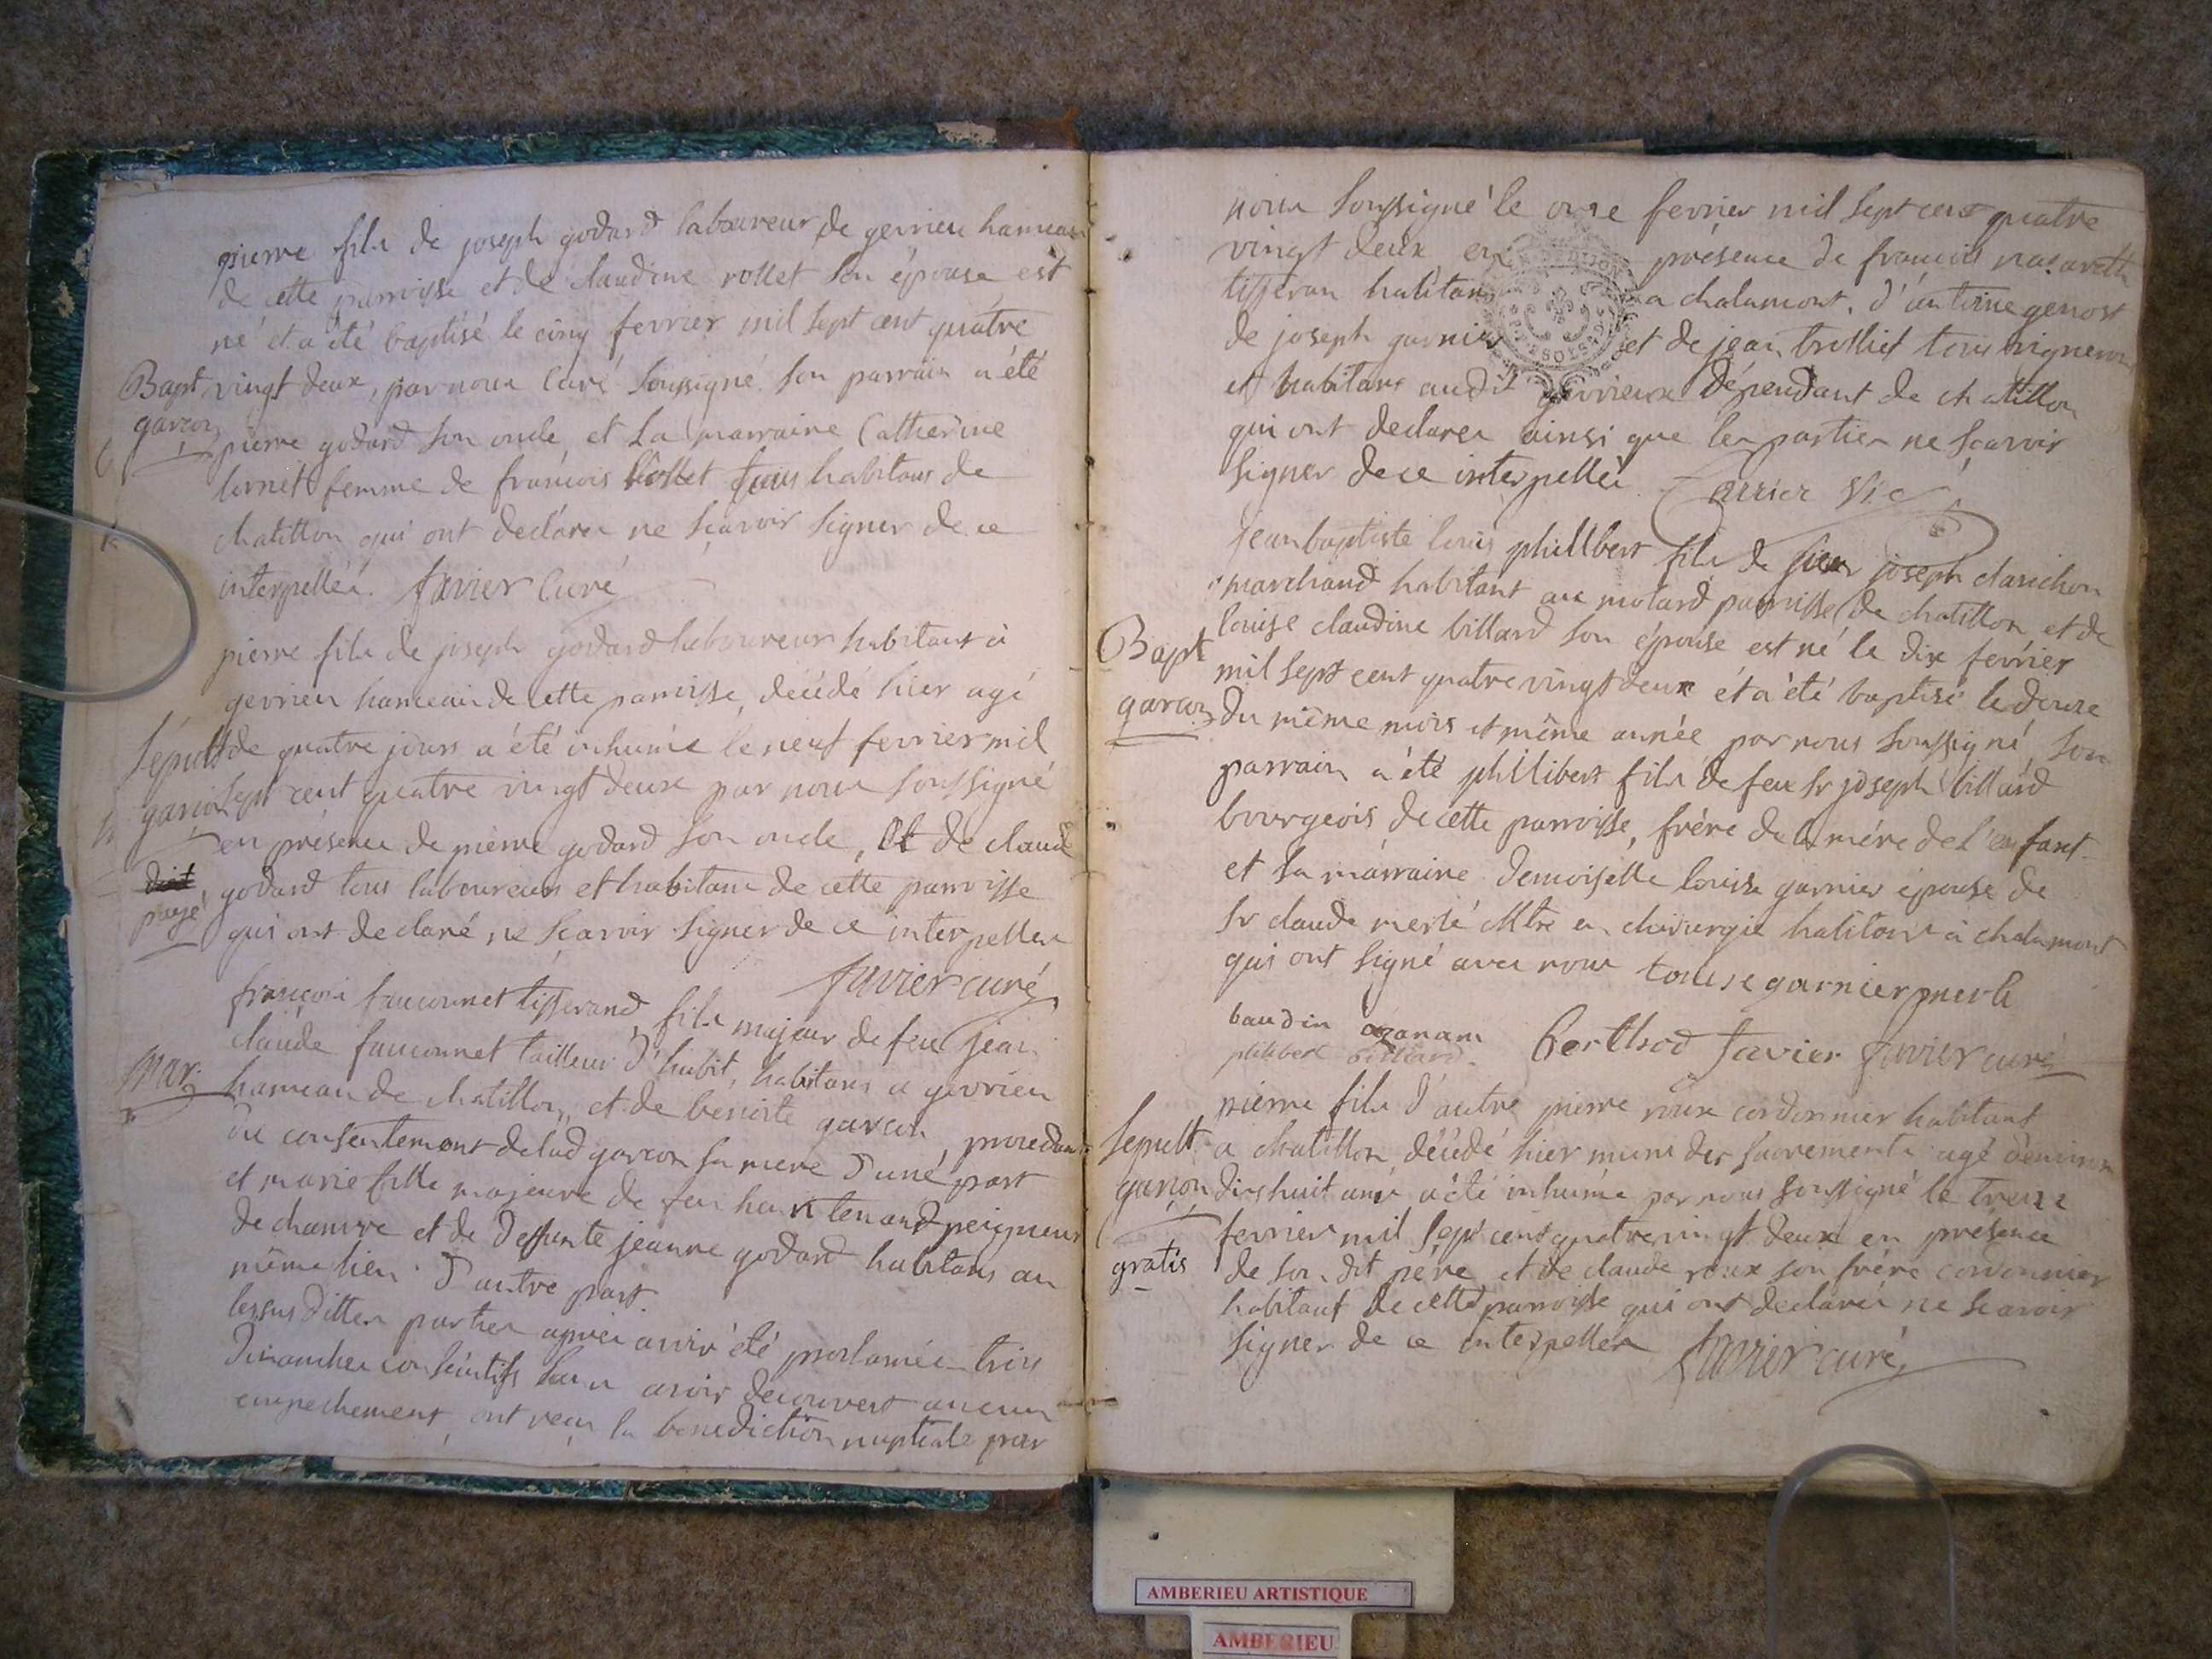 pierre fils de joseph godard laboureur de gevrieu hameau
de cette parroisse et de claudine rollet son épouse est
né et a été baptisé le cinq fevrier mil sept cent quatre
Bapt vingt deux, par nous Curé soussigné. son parrain a été
garcon pierre godard son oncle, et sa marraine Catherine
femme de francois tous habitans de
chatillon qui ont declarés ne sçavoir signer de ce
interpellés. favier Curé
pierre fils de joseph godard laboureur habitant à
gevrieu hameau de cette parroisse, décédé hier agé
Sépult de quatre jours a été inhumé le neuf fevrier mil
garçon sept cent quatre vingt deux par nous soussigné
en présence de pierre godard son oncle, et de claude
godard tous laboureurs et habitans de cette parroisse
payé qui ont declaré ne sçavoir signer de ce interpellés
favier curé
francois fauconnet tisserand, fils majeur de feu jean
claude fauconnet tailleur d'habit, habitans a gevrieu
Mar. hameau de chatillon, et de benoite garcon, procedant
du consentement de lad garcon sa mere d'une part
et marie fille majeure de feu tenand peigneur
de chanvre et de deffunte jeanne godard habitans au
même lieu d'autre part.
lessus dittes parties après avoir été proclamées trois
dimanches consécutifs sans avoir découvert aucun
empechement, ont reçu la benediction nuptiale par
nous soussigné le onze fevrier mil sept cent quatre
vingt deux en présence de francois nazareth
tisseran habitant a chalamont, d'antoine genost
de joseph garnier et de jean trolliet tous vignerons
et habitans audit gevrieux dépendant de chatillon
qui ont declarés ainsi que les parties ne sçavoir
signer de ce interpellés. Vic
jean baptiste louis philibert fils de sieur joseph clarichon
marchand habitant au molard parroisse de chatillon et de
louise claudine billard son épouse est né le dix fevrier
Bapt mil sept cent quatre vingt deux et a été baptisé le douze
garcon du même mois et même année par nous soussigné, son
parrain a été philibert fils de feu sr joseph billard
bourgeois de cette parroisse, frère de la mére de l'enfant
et sa marraine demoiselle louise garnier épouse de
sr claude merlé Mtre en chirurgie habitant à chalamont
qui ont signé avec nous louise garnier merle
baudin ozanam Berthod favier favier curé
philibert billard
pierre fils d'autre pierre roux cordonnier habitant
Sepult a chatillon, décédé hier muni des sacrements agé d'environ
garçon dixhuit ans a été inhumé par nous soussigné le treize
fevrier mil sept cent quatre vingt deux en présence
gratis de son dit pére et de claude roux son frére cordonnier
habitant de cette parroisse qui ont declarés ne scavoir
signer de ce interpellés favier curé
AMBERIEU ARTISTIQUE
AMBERIEU